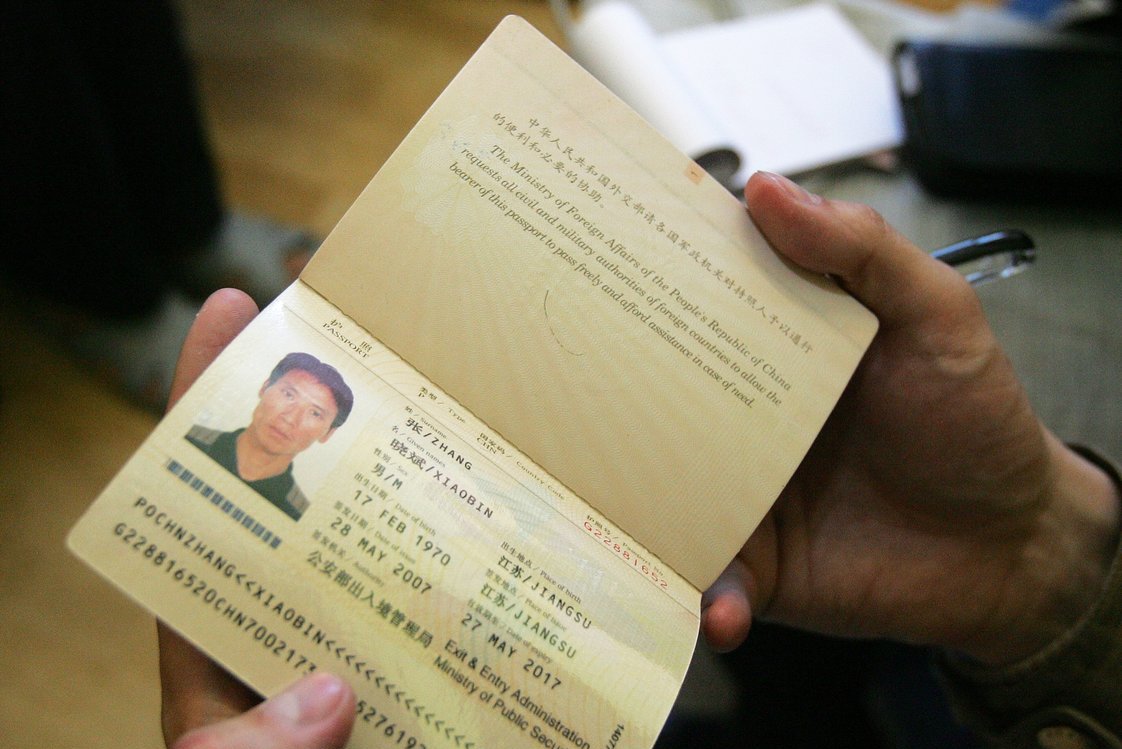 中华人民共和国外交部请各国军政机关对持照人予以通行
的便利和必要的协助。
The Ministry of Foreign Affairs of the People's Republic of China
requests all civil and military authorities of foreign countries to allow the
bearer of this passport to pass freely and afford assistance in case of need.
护 照
PASSPORT
类型 / Type
P
国家码 / Country Code
CHN
护照号 / Passport No
G22881652
姓 / Surname
张/ZHANG
名 / Given names
晓斌/XIAOBIN
性别 / Sex
男/M
出生日期 / Date of birth
17 FEB 1970
出生地点 / Place of birth
江苏/JIANGSU
签发日期 / Date of issue
28 MAY 2007
签发地点 / Place of issue
江苏/JIANGSU
签发机关 / Authority
公安部出入境管理局
有效期至 / Date of expiry
27 MAY 2017
Exit & Entry Administration
Ministry of Public
POCHNZHANG<<XIAOBIN<<<<<<<<<<<<<<<
G228816520CHN700217